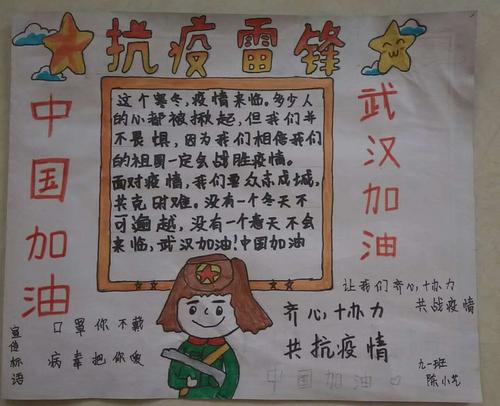 抗疫雷锋
中国加油
武汉加油
这个寒冬，疫情来临。多少人
的心都被揪起，但我们并
不畏惧，因为我们相信我们
的祖国一定会战胜疫情。
面对疫情，我们要众志成城，
共克时难。没有一个冬天不
可逾越，没有一个春天不会
来临，武汉加油！中国加油
让我们齐心协力
共战疫情
齐心协力
共抗疫情
中国加油
宣传标语
口罩你不戴
病毒把你爱
九一班
陈小艺